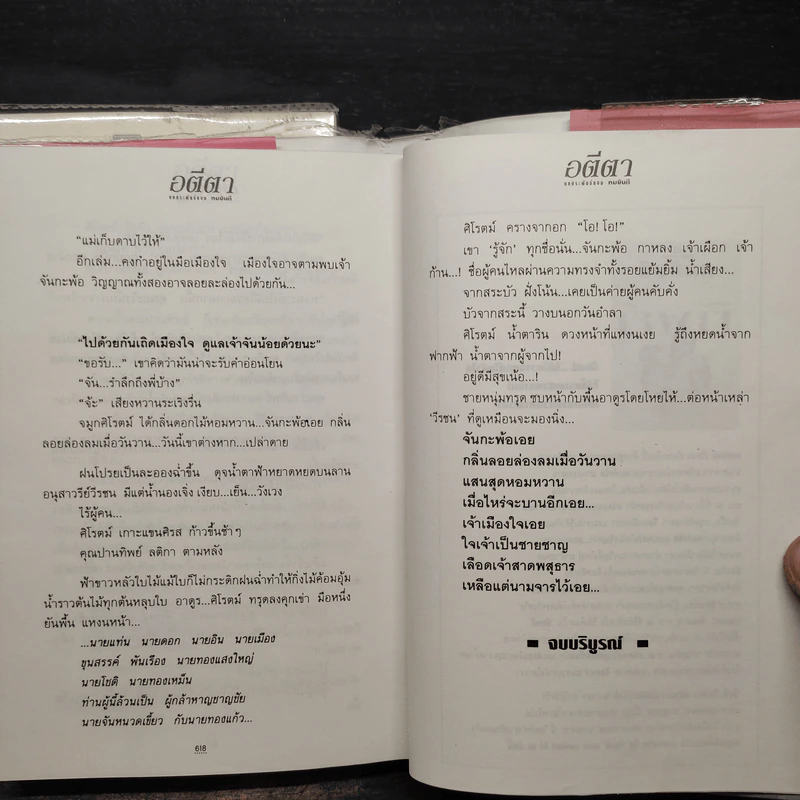 อตีตา
บทประพันธ์ของ ทมยันตี
“แม่เก็บดาบไว้ให้”
อีกเล่ม...คงกำอยู่ในมือเมืองใจ เมืองใจอาจตามพบเจ้า
จันกะพ้อ วิญญาณทั้งสองอาจลอยละล่องไปด้วยกัน...
“ไปด้วยกันเถิดเมืองใจ ดูแลเจ้าจันน้อยด้วยนะ”
“ขอรับ...” เขาคิดว่ามันน่าจะรับคำอ่อนโยน
“จัน...รำลึกถึงพี่บ้าง”
“จ้ะ” เสียงหวานระเริงรื่น
จมูกศิโรตม์ ได้กลิ่นดอกไม้หอมหวาน...จันกะพ้อเอย กลิ่น
ลอยล่องลมเมื่อวันวาน...วันนี้เขาต่างหาก...เปล่าดาย
ฝนโปรยเป็นละอองฉ่ำขึ้น ดุจน้ำตาฟ้าหยาดหยดบนลาน
อนุสาวรีย์วีรชน มีแต่น้ำนองเจิ่ง เงียบ...เย็น...วังเวง
ไร้ผู้คน...
ศิโรตม์ เกาะแขนศิรส ก้าวขึ้นช้าๆ
คุณปานทิพย์ ลติกา ตามหลัง
ฟ้าขาวหลัวใบไม้แม้ใบก็ไม่กระดิกฝนฉ่ำทำให้กิ่งไม้ค้อมอุ้ม
น้ำราวต้นไม้ทุกต้นหลุบใบ อาดูร...ศิโรตม์ ทรุดลงคุกเข่า มือหนึ่ง
ยันพื้น แหงนหน้า...
...นายแท่น นายดอก นายอิน นายเมือง
ขุนสรรค์ พันเรือง นายทองแสงใหญ่
นายโชติ นายทองเหม็น
ท่านผู้นี้ล้วนเป็น ผู้กล้าหาญชาญชัย
นายจันหนวดเขี้ยว กับนายทองแก้ว...
618
อตีตา
บทประพันธ์ของ ทมยันตี
ศิโรตม์ ครางจากอก “โอ! โอ!”
เขา ‘รู้จัก’ ทุกชื่อนั่น...จันกะพ้อ กาหลง เจ้าเผือก เจ้า
ก้าน...! ชื่อผู้คนไหลผ่านความทรงจำทั้งรอยแย้มยิ้ม น้ำเสียง...
จากสระบัว ฝั่งโน้น...เคยเป็นค่ายผู้คนคับคั่ง
บัวจากสระนี้ วางบนอกวันอำลา
ศิโรตม์ น้ำตาริน ดวงหน้าที่แหงนเงย รู้ถึงหยดน้ำจาก
ฟากฟ้า น้ำตาจากผู้จากไป!
อยู่ดีมีสุขเน้อ...!
ชายหนุ่มทรุด ซบหน้ากับพื้นอาดูรโดยโหยไห้...ต่อหน้าเหล่า
‘วีรชน’ ที่ดูเหมือนจะมองนิ่ง...
จันกะพ้อเอย
กลิ่นลอยล่องลมเมื่อวันวาน
แสนสุดหอมหวาน
เมื่อไหร่จะบานอีกเอย...
เจ้าเมืองใจเอย
ใจเจ้าเป็นชายชาญ
เลือดเจ้าสาดพสุธาร
เหลือแต่นามจารไว้เอย...
จบบริบูรณ์